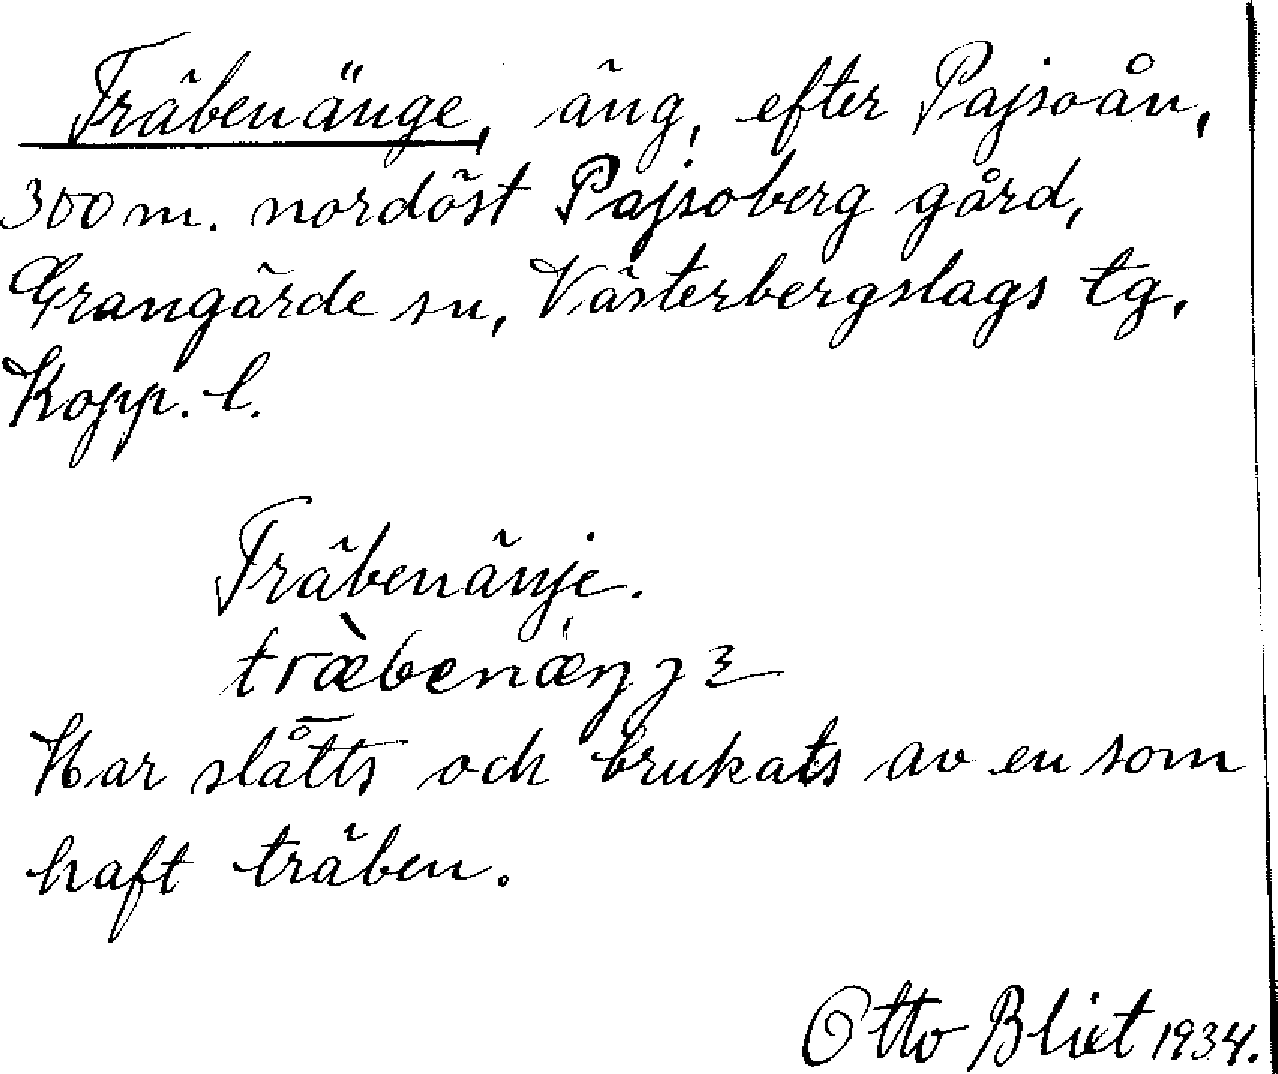 Träbenänge, äng, efter Pajsoån,
300 m. nordöst Pajsoberg gård,
Grangärde sn, Västerbergslags tg,
Kopp. l.
Träbenänje.
træ̀benæŋjɛ
Har slåtts och brukats av en som
haft träben.
Otto Blixt 1934.